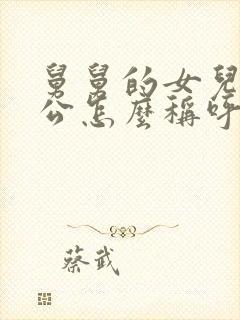 舅舅的女兒
公怎麼稱呼
蔡武